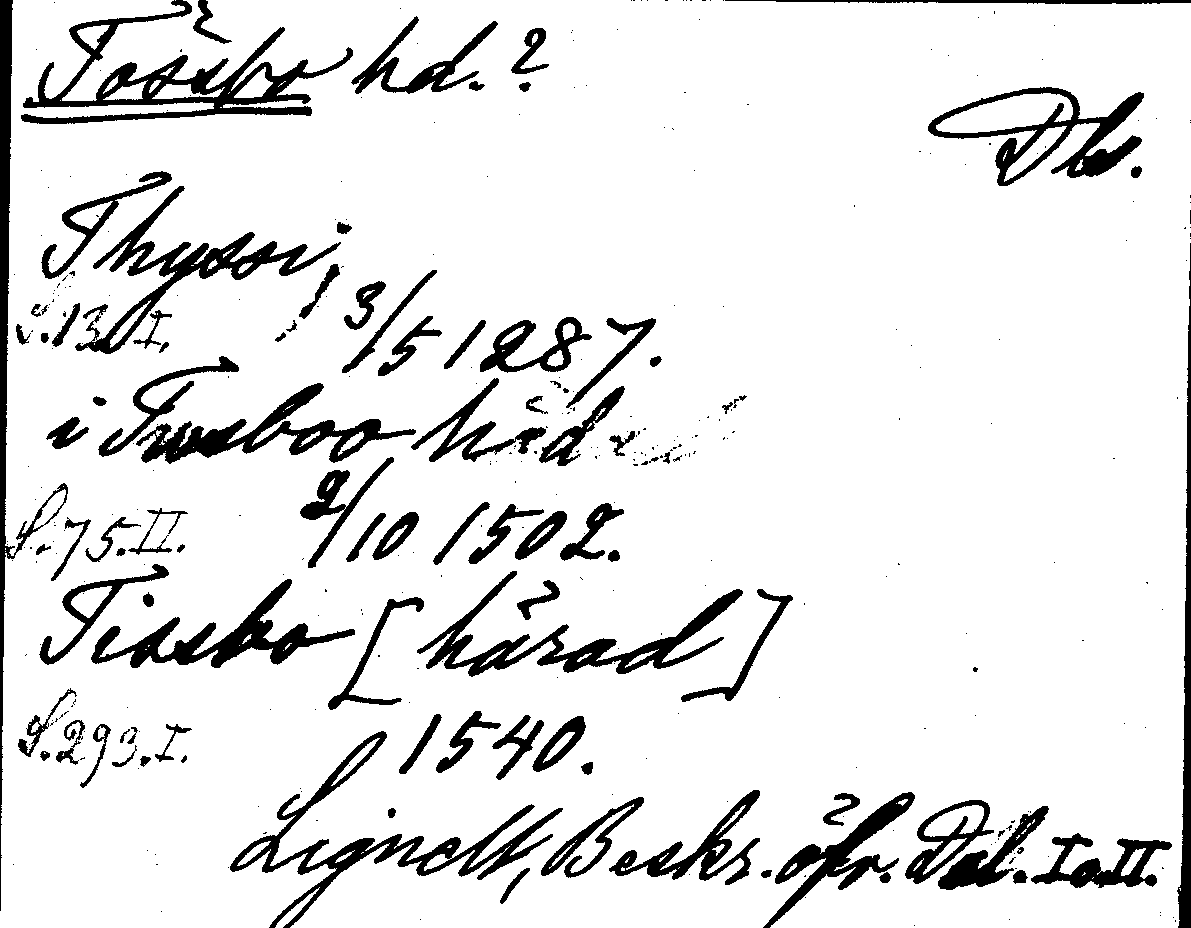 Tössbo hd.?
Dls.
Thyssi,
S.13.I. 3/5 1287.
i Twsboo härad
S.75.II. 2/10 1502.
Tissbo [härad]
S.293.I. 1540.
Lignell, Beskr. öfv. Dal. I o. II.